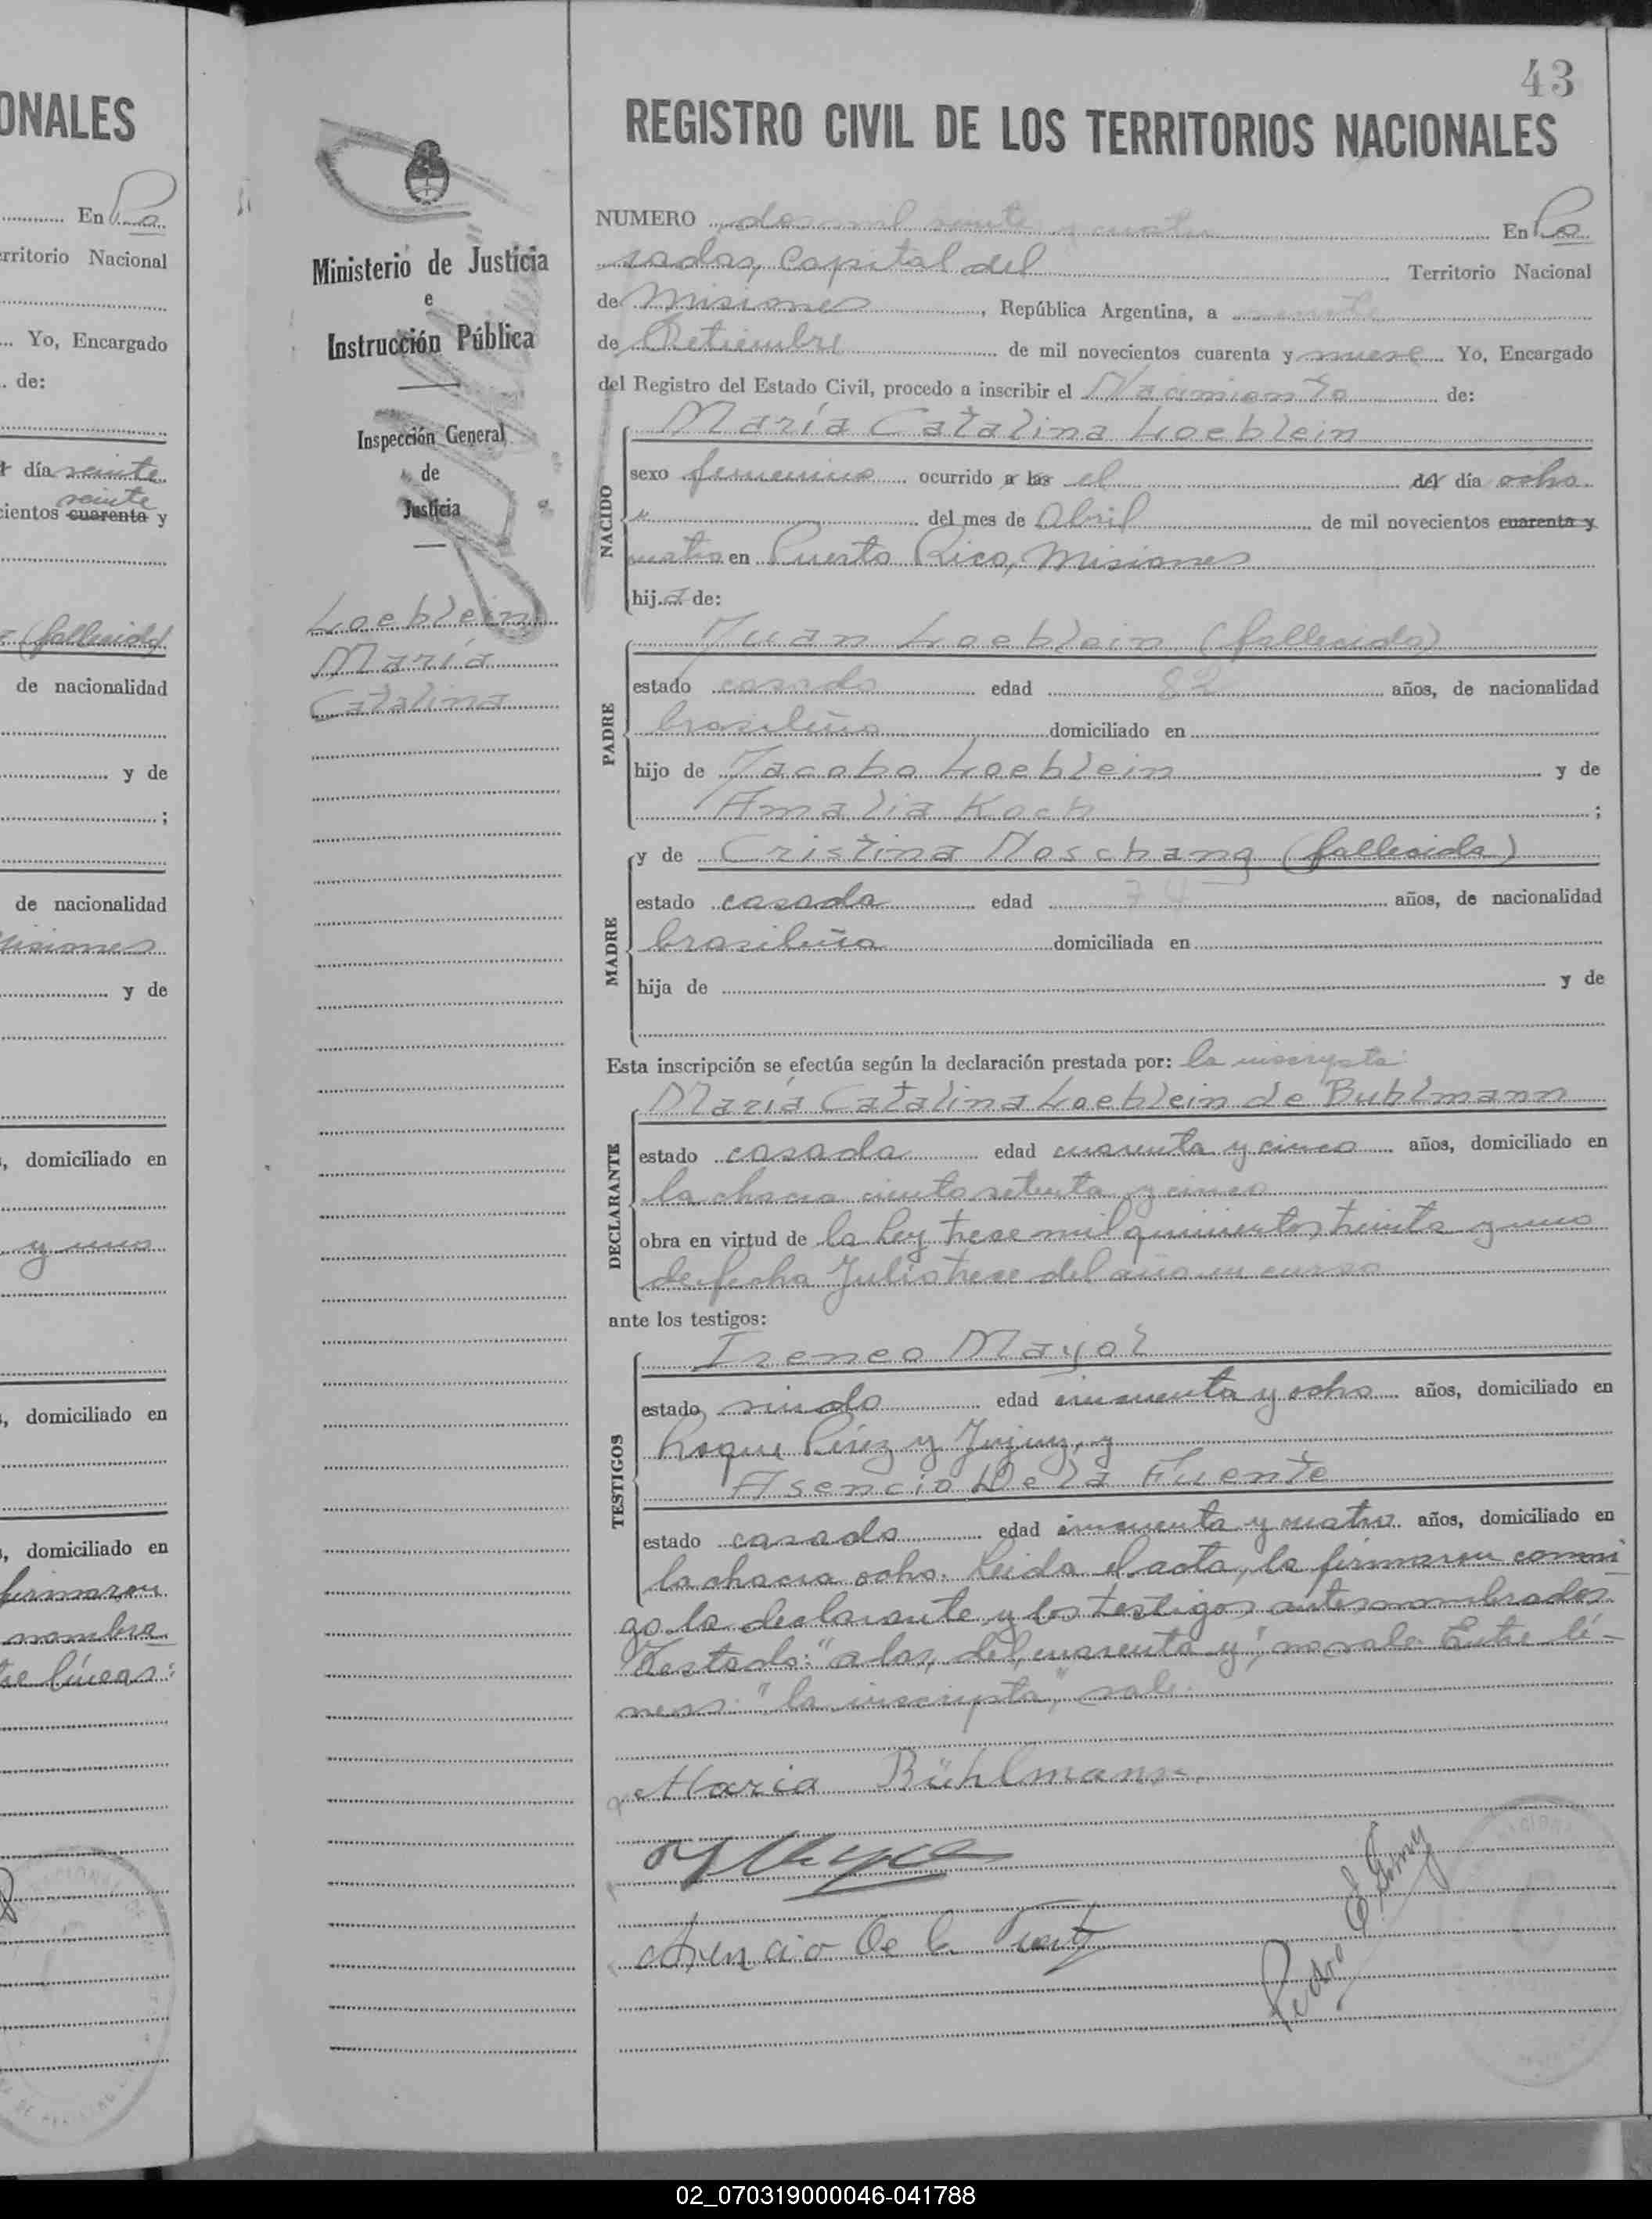 ONALES
En Po
erritorio Nacional
Yo, Encargado
de:
día veinte
veinte
cientos cuarenta y
(fallecido)
de nacionalidad
y de
;
de nacionalidad
Misiones
y de
, domiciliado en
y uno
, domiciliado en
, domiciliado en
firmaron
nombra
líneas:
Ministerio de Justicia
e
Instrucción Pública
Inspección General
de
Justicia
Loeblein
María
Catalina
43
REGISTRO CIVIL DE LOS TERRITORIOS NACIONALES
NUMERO dos mil veinte y cuatro En Po
sadas, Capital del Territorio Nacional
de Misiones, República Argentina, a veinte
de Setiembre de mil novecientos cuarenta y nueve Yo, Encargado
del Registro del Estado Civil, procedo a inscribir el Nacimiento de:
María Catalina Loeblein
NACIDO
sexo femenino ocurrido a las el del día ocho
" del mes de Abril de mil novecientos cuarenta y
cuatro en Puerto Rico, Misiones
hija de:
PADRE
Juan Loeblein (fallecido)
estado casado edad 82 años, de nacionalidad
brasileño domiciliado en
hijo de Jacobo Loeblein y de
Amalia Koch ;
MADRE
y de Cristina Noschang (fallecida)
estado casada edad 74 años, de nacionalidad
brasileña domiciliada en
hija de y de
Esta inscripción se efectúa según la declaración prestada por: la inscripta
DECLARANTE
María Catalina Loeblein de Buhlmann
estado casada edad cuarenta y cinco años, domiciliado en
la chacra ciento setenta y cinco
obra en virtud de la Ley trece mil quinientos treinta y uno
de fecha Julio trece del año en curso
ante los testigos:
TESTIGOS
Ireneo Mayol
estado viudo edad cincuenta y ocho años, domiciliado en
Roque Pérez y Jujuy, y
Asencio De la Fuente
estado casado edad cincuenta y cuatro años, domiciliado en
la chacra ocho. Leida el acta, la firmaron conmi
go la declarante y los testigos antesnombrados.
Testado: "a las, del, cuarenta y", no vale. Entre lí-
neas: "la inscripta", vale.
Maria Bühlmann.
Asencio De la Fuente
Pedro E.
02_070319000046-041788